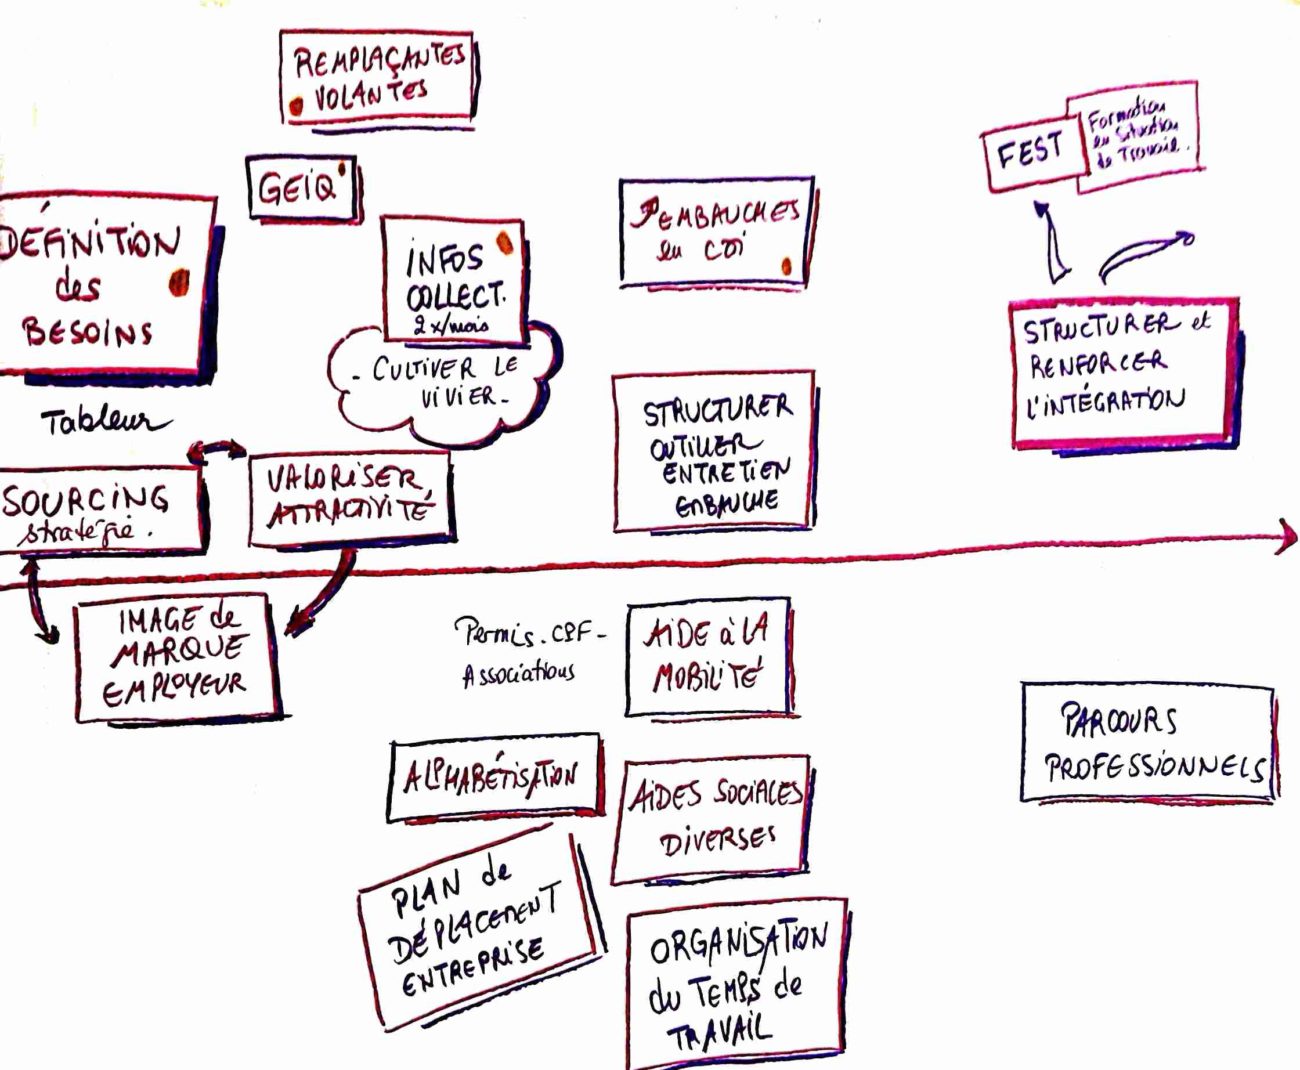 REMPLAÇANTES
VOLANTES
GEIQ
DÉFINITION
des
BESOINS
Tableur
INFOS
COLLECT.
2x/mois
- CULTIVER LE
VIVIER -
EMBAUCHES
en CDI
FEST
Formation
en Situation
de Travail.
STRUCTURER et
RENFORCER
L'INTÉGRATION
STRUCTURER
OUTILLER
ENTRETIEN
EMBAUCHE
SOURCING
stratégie.
VALORISER
ATTRACTIVITÉ
IMAGE de
MARQUE
EMPLOYEUR
Permis. CPF -
Associations
AIDE à LA
MOBILITÉ
ALPHABÉTISATION
AIDES SOCIALES
DIVERSES
PARCOURS
PROFESSIONNELS
PLAN de
DÉPLACEMENT
ENTREPRISE
ORGANISATION
du TEMPS de
TRAVAIL